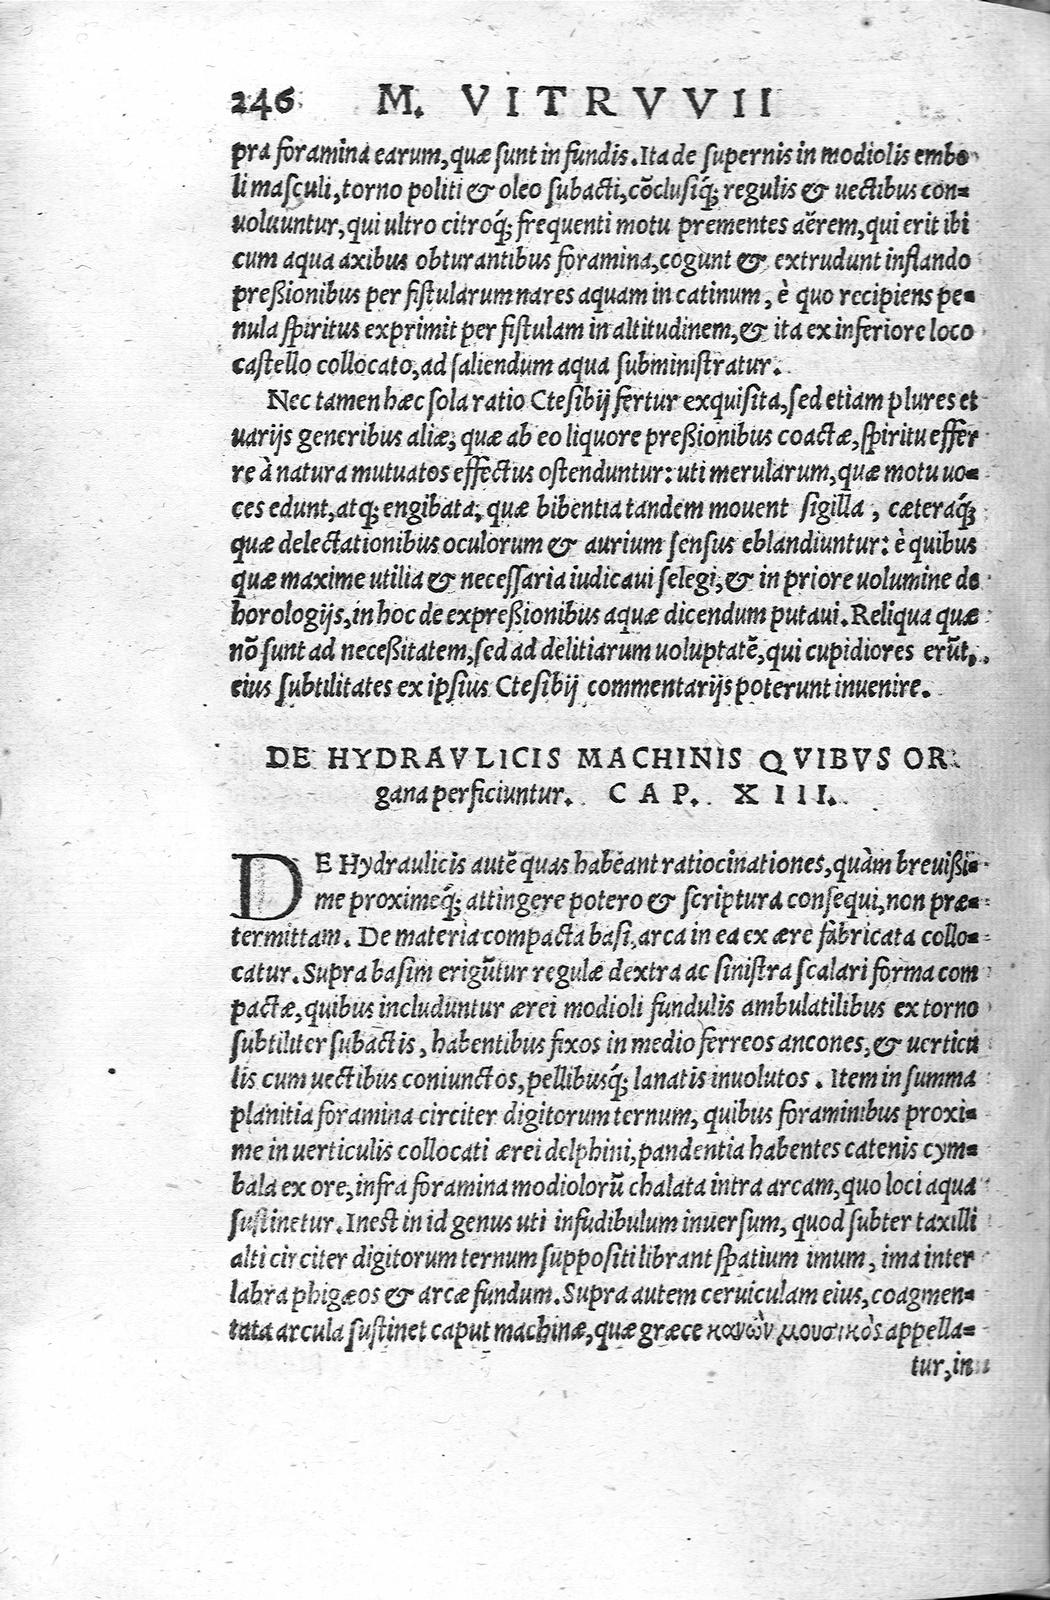 246 M. VITRVVII
pra foramina earum, quæ sunt in fundis. Ita de supernis in modiolis embo
li masculi, torno politi & oleo subacti, cõclusiq́; regulis & uectibus con-
uoluuntur, qui ultro citroq́; frequenti motu prementes aërem, qui erit ibi
cum aqua axibus obturantibus foramina, cogunt & extrudunt inflando
preßionibus per fistularum nares aquam in catinum, è quo recipiens pe-
nula spiritus exprimit per fistulam in altitudinem, & ita ex inferiore loco
castello collocato, ad saliendum aqua subministratur.
Nec tamen hæc sola ratio Ctesibij fertur exquisita, sed etiam plures et
uarijs generibus aliæ, quæ ab eo liquore preßionibus coactæ, spiritu effer
re à natura mutuatos effectus ostenduntur: uti merularum, quæ motu uo-
ces edunt, atq; engibata, quæ bibentia tandem mouent sigilla, cæteraq́;
quæ delectationibus oculorum & aurium sensus eblandiuntur: è quibus
quæ maxime utilia & necessaria iudicaui selegi, & in priore uolumine de
horologijs, in hoc de expreßionibus aquæ dicendum putaui. Reliqua quæ
nõ sunt ad neceßitatem, sed ad delitiarum uoluptatẽ, qui cupidiores erũt,
eius subtilitates ex ipsius Ctesibij commentarijs poterunt inuenire.
DE HYDRAVLICIS MACHINIS QVIBVS OR
gana perficiuntur. CAP. XIII.
DE Hydraulicis autẽ quas habeant ratiocinationes, quàm breuißi-
me proximeq́; attingere potero & scriptura consequi, non præ-
termittam. De materia compacta basi, arca in ea ex ære fabricata collo-
catur. Supra basim erigũtur regulæ dextra ac sinistra scalari forma com
pactæ, quibus includuntur ærei modioli fundulis ambulatilibus ex torno
subtiliter subactis, habentibus fixos in medio ferreos ancones, & uerticu
lis cum uectibus coniunctos, pellibusq́; lanatis inuolutos. Item in summa
planitia foramina circiter digitorum ternum, quibus foraminibus proxi-
me in uerticulis collocati ærei delphini, pandentia habentes catenis cym-
bala ex ore, infra foramina modiolorũ chalata intra arcam, quo loci aqua
sustinetur. Inest in id genus uti infudibulum inuersum, quod subter taxilli
alti circiter digitorum ternum suppositi librant spatium imum, ima inter
labra phigæos & arcæ fundum. Supra autem ceruiculam eius, coagmen-
tata arcula sustinet caput machinæ, quæ græce κανὼν μουσικὸς appella-
tur, in